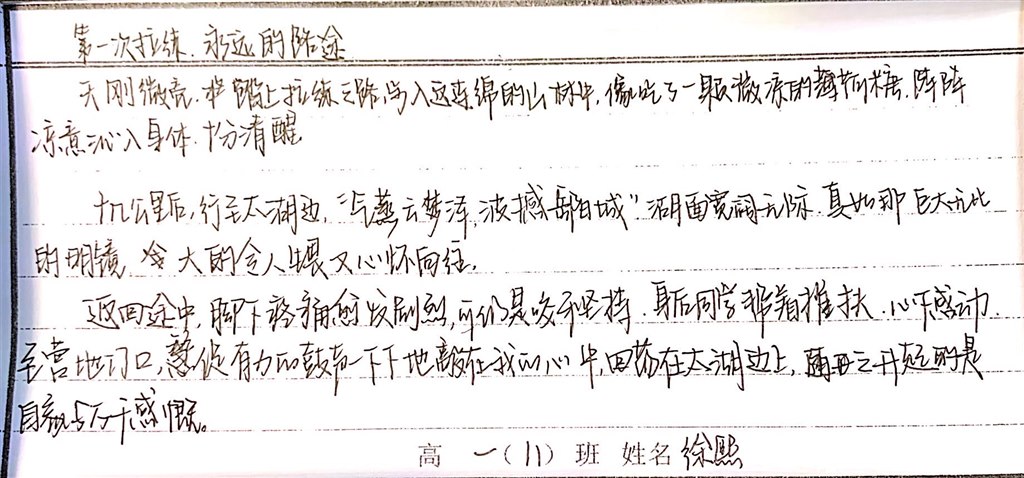 第一次拉练.永远的路途
天刚微亮.踏上拉练之路,步入这连绵的山林中,像吃了一颗微凉的薄荷糖.阵阵
凉意沁入身体.十分清醒
十几公里后,行至太湖边,“气蒸云梦泽,波撼岳阳城”湖面宽阔无际.真如那巨大无比
的明镜 大的令人生畏又心怀向往.
返回途中,脚下疼痛愈发剧烈,可仍是咬牙坚持.身后同学帮着推扶.心下感动.
至营地门口,整促有力的鼓声一下下地敲在我的心中,回荡在太湖边上,随之升起的是
自豪与万千感慨。
高一(11)班 姓名徐熙